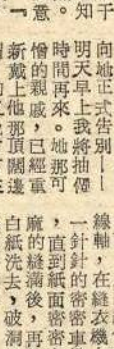 于
向她正式告別——
明天早上我將抽僅
時間再來。她那可
憎的親戚，已經重
新戴上他那頂闊邊
線軸，在縫衣機
一針針的密密車
，直到紙面密密
麻的縫滿後，再
白紙洗去，破洞